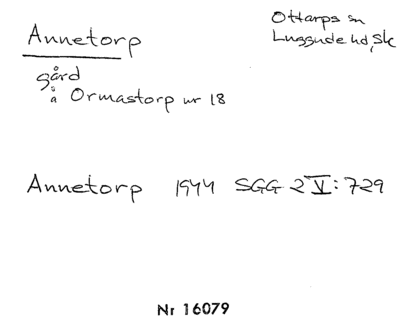 Annetorp
Ottarps sn
Luggude hd, Sk
gård
å Ormastorp nr 18
Annetorp 1944 SGG 2 V: 729
Nr 16079